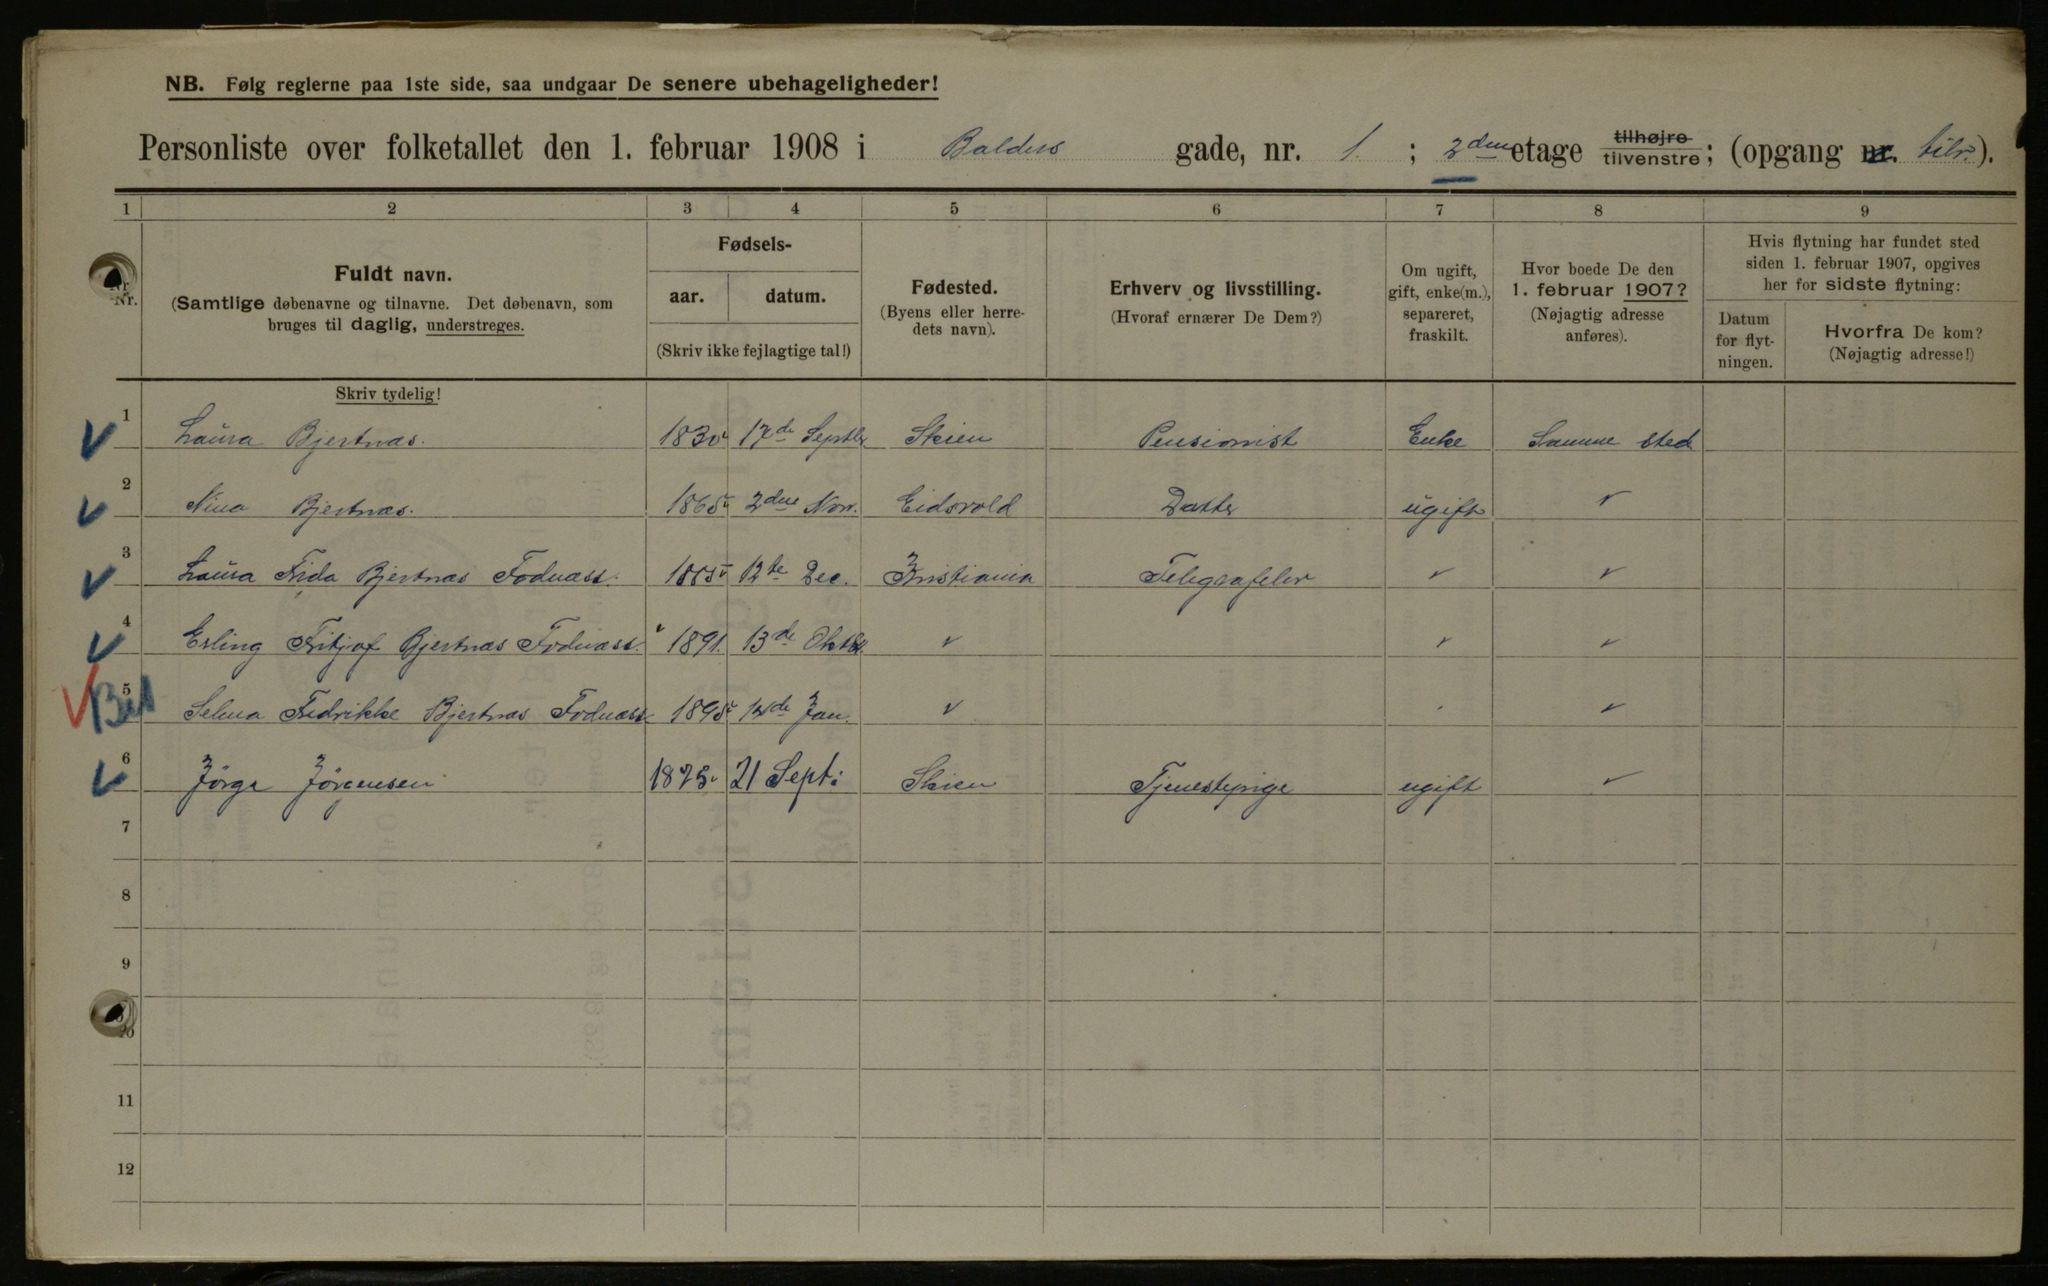 NB. Følg reglerne paa 1ste side, saa undgaar De senere ubehageligheder!
Personliste over folketallet den 1. februar 1908 i Balders gade, nr. 1. ; 2den etage tilhøjre tilvenstre; (opgang nr. tilv.).
1 2 3 4 5 6 7 8 9
Nr.
Fuldt navn.
(Samtlige døbenavne og tilnavne. Det døbenavn, som
bruges til daglig, understreges.
Fødsels-
aar. datum.
(Skriv ikke fejlagtige tal!)
Fødested.
(Byens eller herre-
dets navn).
Erhverv og livsstilling.
(Hvoraf ernærer De Dem?)
Om ugift,
gift, enke(m.),
separeret,
fraskilt.
Hvor boede De den
1. februar 1907?
(Nøjagtig adresse
anføres).
Hvis flytning har fundet sted
siden 1. februar 1907, opgives
her for sidste flytning:
Datum
for flyt-
ningen.
Hvorfra De kom?
(Nøjagtig adresse!)
Skriv tydelig!
1 Laura Bjertnæs. 1830 17de Septbr Skien Pensionist Enke Samme sted
2 Nina Bjertnæs. 1865 2den Nov. Eidsvold Datter ugift
3 Laura Frida Bjertnæs Fodnæss. 1885 12te Dec. Kristiania Telegrafelev
4 Erling Fritjof Bjertnæs Fodnæss. 1891. 13de Oktbr.
5 Selma Fredrikke Bjertnæs Fodnæss 1895 12de Jan.
6 Jörga Jörgensen 1875 21 Sept: Skien Tjenestepige ugift
7
8
9
10
11
12